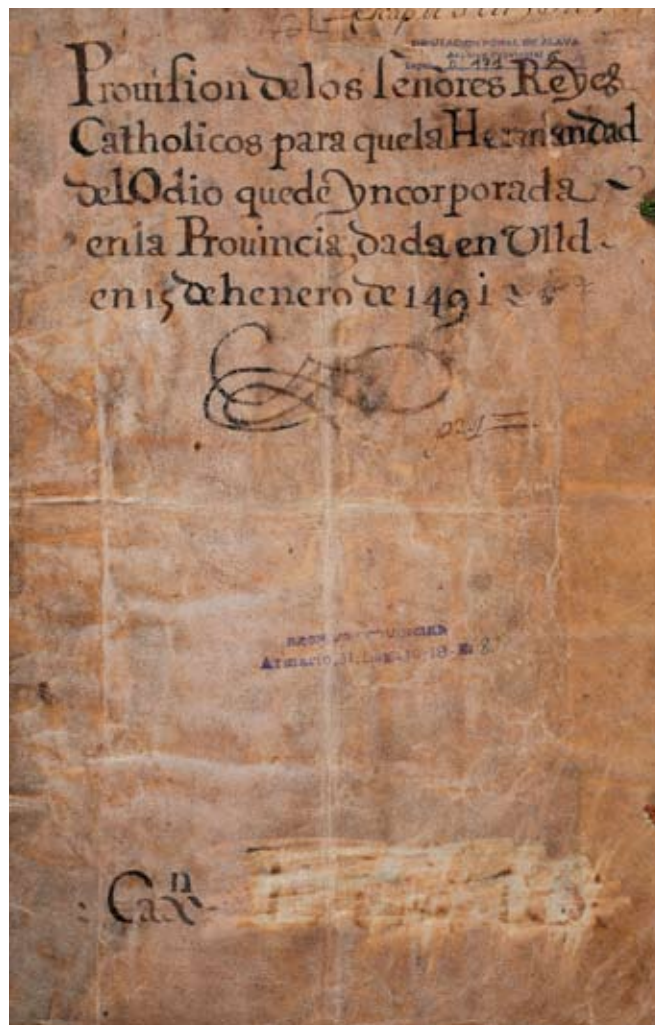 DIPUTACION FORAL DE ALAVA
Prouision de los señores Reyes
Catholicos para que la Hermandad
del Odio quede Yncorporada
en la Prouincia, dada en Vlld.
en 15 de henero de 1491
Armario, 31. Legajo 18. 8
: Cax